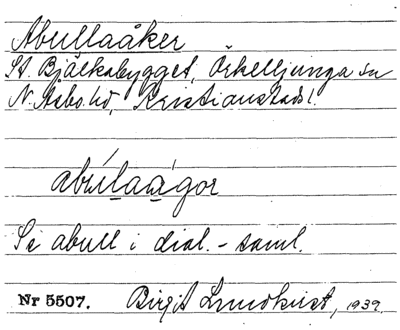 Abullaåker
St. Bjälkabygget, Örkelljunga sn
N. Åsbo hd, Kristianstads l.
abúlaàgor
Se abull i dial.-saml.
Nr 5507. Birgit Lundkvist, 1939.